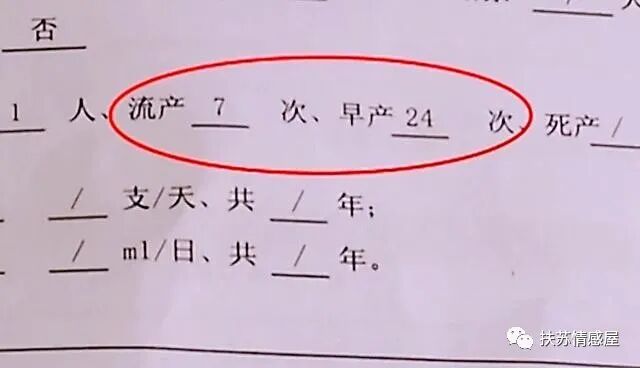 否
1 人、流产 7 次、早产 24 次、死产 /
/ 支/天、共 / 年；
/ ml/日、共 / 年。
扶苏情感屋